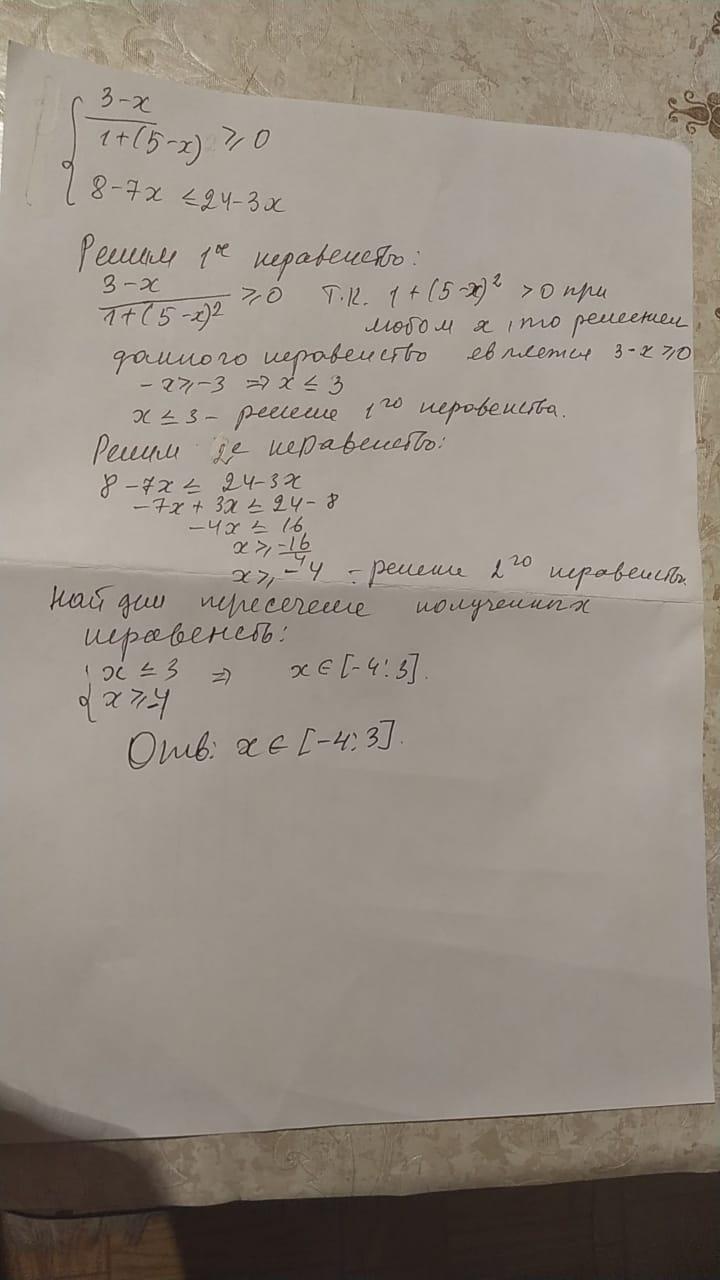 { 3-x / 1+(5-x) ⩾ 0
8-7x ≤ 24-3x
Решим 1е неравенство:
3-x / 1+(5-x)² ⩾ 0 Т.К. 1+(5-x)² > 0 при
любом x, то решением
данного неравенство является 3-x ⩾ 0
-x ⩾ -3 ⇒ x ≤ 3
x ≤ 3 - решение 1го неравенства.
Решим 2е неравенство:
8-7x ≤ 24-3x
-7x + 3x ≤ 24-8
-4x ≤ 16
x ⩾ -16/4
x ⩾ -4 - решение 2го неравенств.
Найдем пересечение полученных
неравенств:
{ x ≤ 3 ⇒ x ∈ [-4;3].
x ⩾ -4
Отв: x ∈ [-4;3].